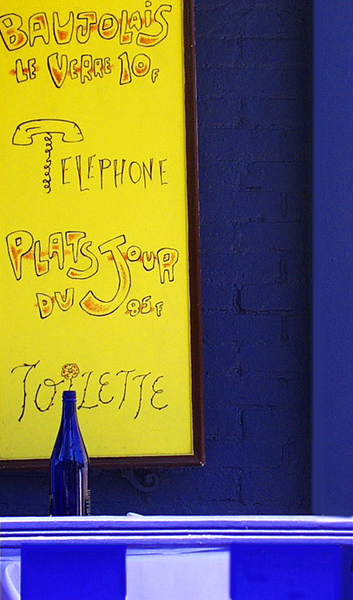 BAUJOLAIS
LE VERRE 10F
TELEPHONE
PLATS JOUR
DU 85F
TOILETTE